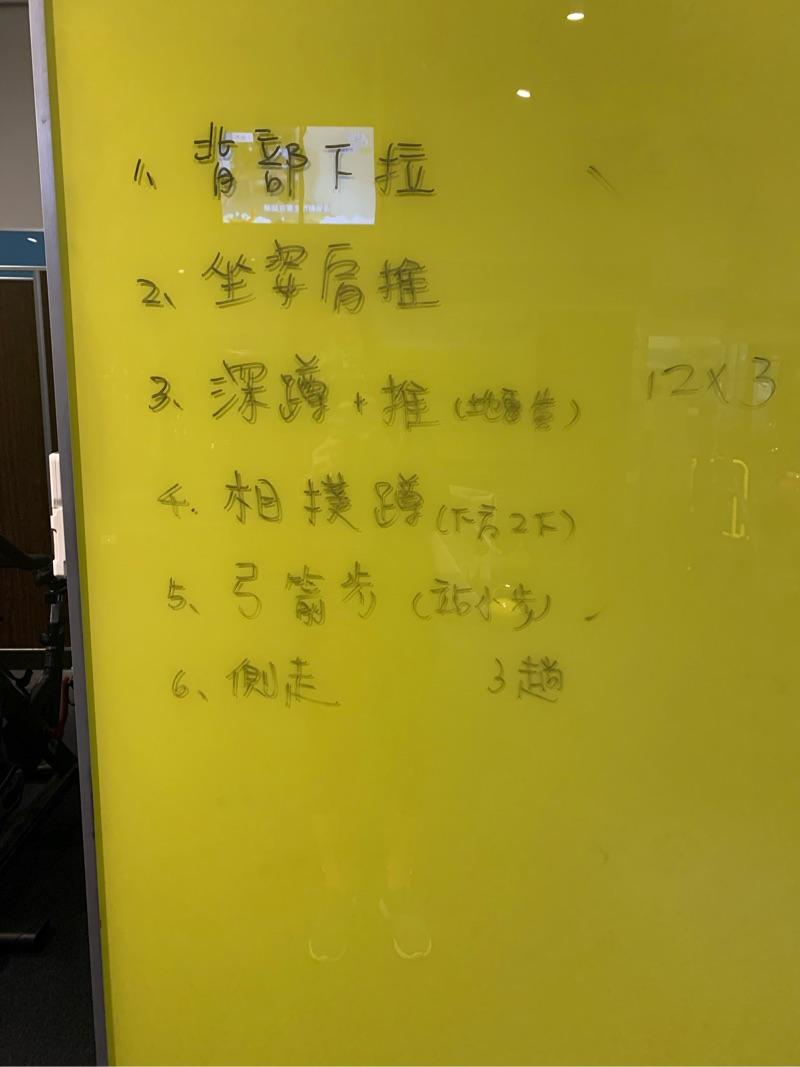 1、背部下拉
2、坐姿肩推
3、深蹲+推(地雷管) 12x3
4.相撲蹲(下方2下)
5、弓箭步(站小步)
6、側走 3趟